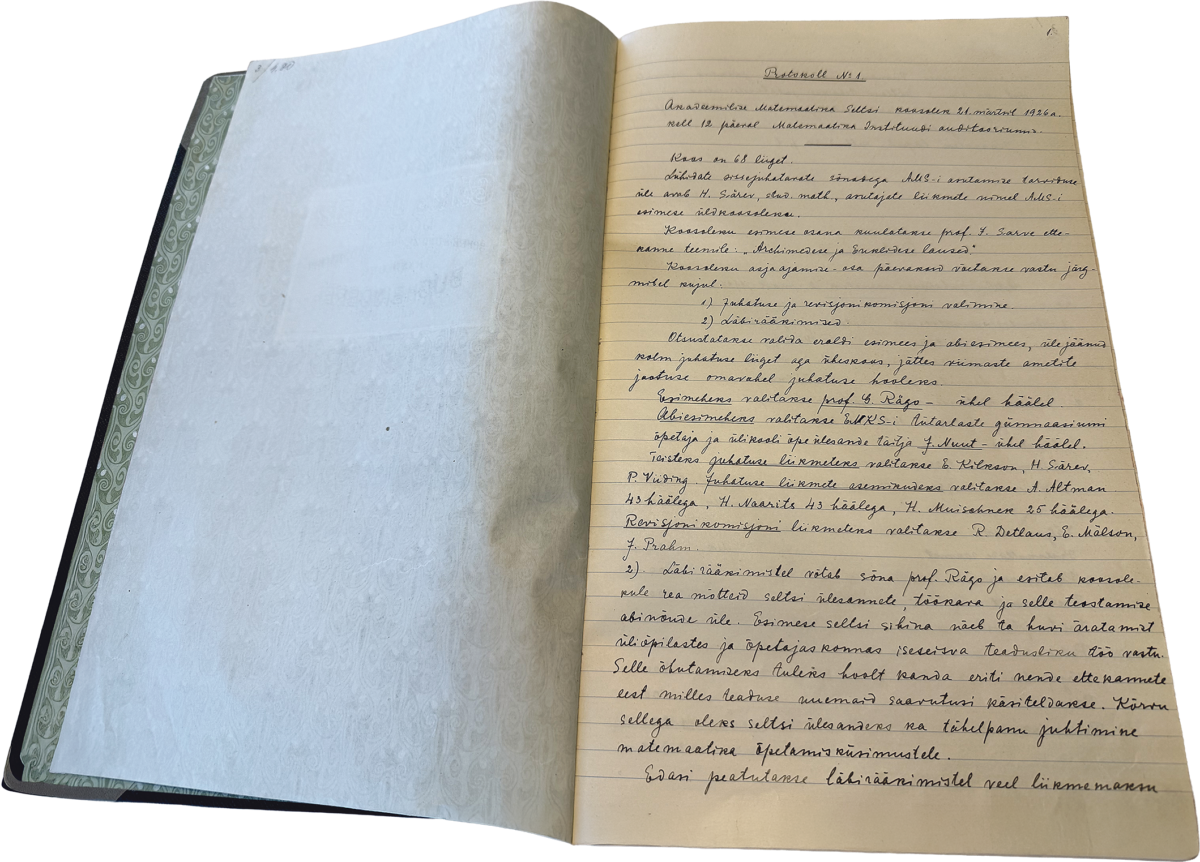 Protokoll № 1.
Akadeemilise Matemaatika Seltsi koosolek 21. märtsil 1926 a.
kell 12 päeval Matemaatika Instituudi auditooriumis.
Koos on 68 liiget.
Lühidate sissejuhatavate sõnadega AMS-i asutamise tarviduse
üle avab H. Särev, stud. math., asutajate liikmete nimel AMS-i
esimese üldkoosoleku.
Koosoleku esimese osana kuulatakse prof. J. Sarve ette-
kanne teemile: „Archimedese ja Eukleidese laused".
Koosoleku asjaajamise-osa päevakord võetakse vastu järg-
misel kujul.
1) Juhatuse ja revisjonikomisjoni valimine.
2) Läbirääkimised.
Otsustatakse valida eraldi esimees ja abiesimees, üle jäänud
kolm juhatuse liiget aga üheskoos, jättes viimaste ametite
jaotuse omavahel juhatuse hooleks.
Esimeheks valitakse prof. G. Rägo – ühel häälel.
Abiesimeheks valitakse ENKS-i tütarlaste gümnaasiumi
õpetaja ja ülikooli õpeülesande täitja J. Nuut – ühel häälel.
Teisteks juhatuse liikmeteks valitakse E. Kilkson, H. Särev,
P. Viiding. Juhatuse liikmete asemikudeks valitakse A. Altman
43 häälega, H. Naarits 43 häälega, H. Muischnek 25 häälega.
Revisjonikomisjoni liikmeteks valitakse R. Detlaus, E. Mälson,
J. Prahm.
2). Läbirääkimistel võtab sõna prof. Rägo ja esitab koosole-
kule rea mõtteid seltsi ülesannete, töökava ja selle teostamise
abinõude üle. Esimese seltsi sihina näeb ta huvi äratamist
üliõpilastes ja õpetajaskonnas iseseisva teadusliku töö vastu.
Selle õhutamiseks tuleks hoolt kanda eriti nende ettekannete
eest milles teaduse uuemaid saavutusi käsiteldakse. Kõrvu
sellega oleks seltsi ülesandeks ka tähelpanu juhtimine
matemaatika õpetamisküsimustele.
Edasi peatutakse läbirääkimistel veel liikmemaksu